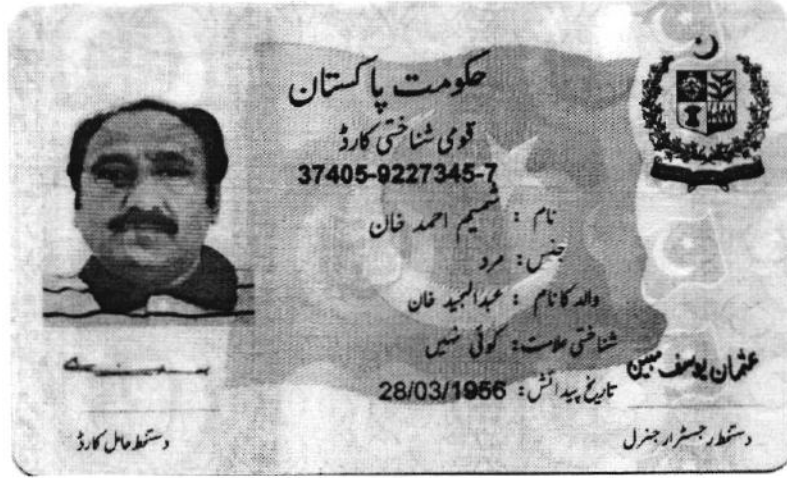 حکومت پاکستان
قومی شناختی کارڈ
37405-9227345-7
نام : شمیم احمد خان
جنس : مرد
والد کا نام : عبدالمجید خان
شناختی علامت : کوئی نہیں
تاریخ پیدائش : 28/03/1956
عثمان یوسف مبین
دستخط رجسٹرار جنرل
دستخط حامل کارڈ